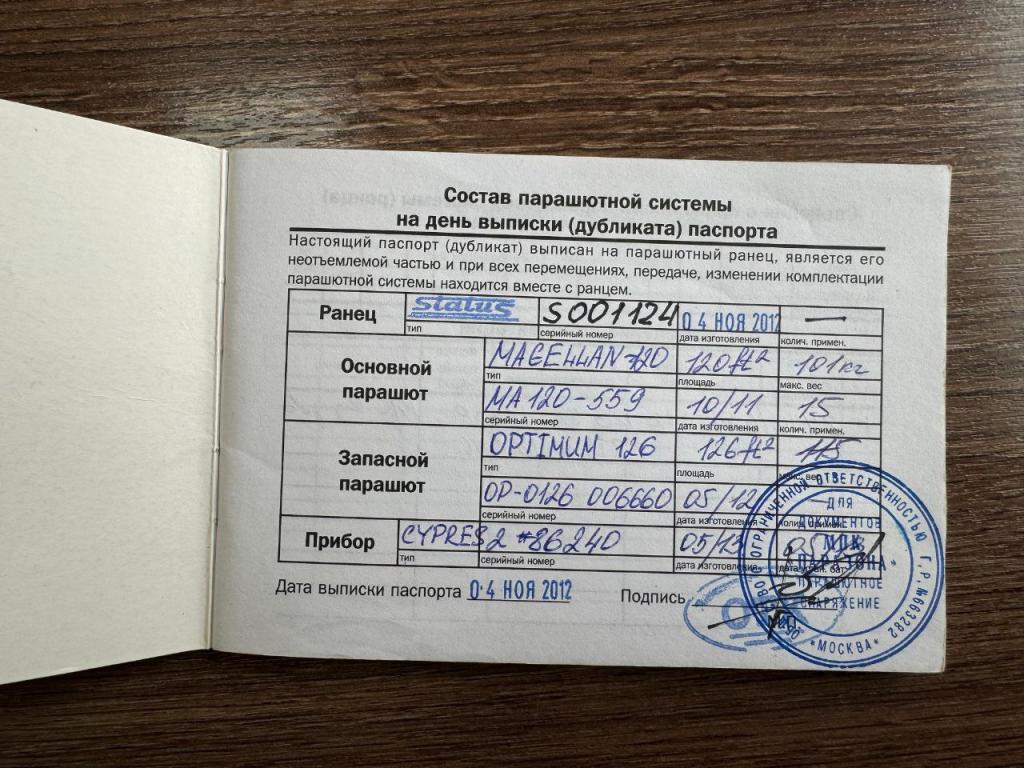 Состав парашютной системы
на день выписки (дубликата) паспорта
Настоящий паспорт (дубликат) выписан на парашютный ранец, является его
неотъемлемой частью и при всех перемещениях, передаче, изменении комплектации
парашютной системы находится вместе с ранцем.
Ранец status S001124 04 НОЯ 2012 —
тип серийный номер дата изготовления колич. примен.
Основной парашют
MAGELLAN-120 120 ft² 101 кг
тип площадь макс. вес
MA120-559 10/11 15
серийный номер дата изготовления колич. примен.
Запасной парашют
OPTIMUM 126 126 ft² 115
тип площадь макс. вес
OP-0126 006660 05/12
серийный номер дата изготовления колич. примен.
Прибор CYPRES2 #86240
тип серийный номер дата изготовления
Дата выписки паспорта 04 НОЯ 2012 Подпись
М.П.
ОГРАНИЧЕННОЙ ОТВЕТСТВЕННОСТЬЮ Г.Р.№663282
*МОСКВА*
ДЛЯ
ДОКУМЕНТОВ
МПК
"ПАРАЗОНА"
ПАРАШЮТНОЕ
СНАРЯЖЕНИЕ